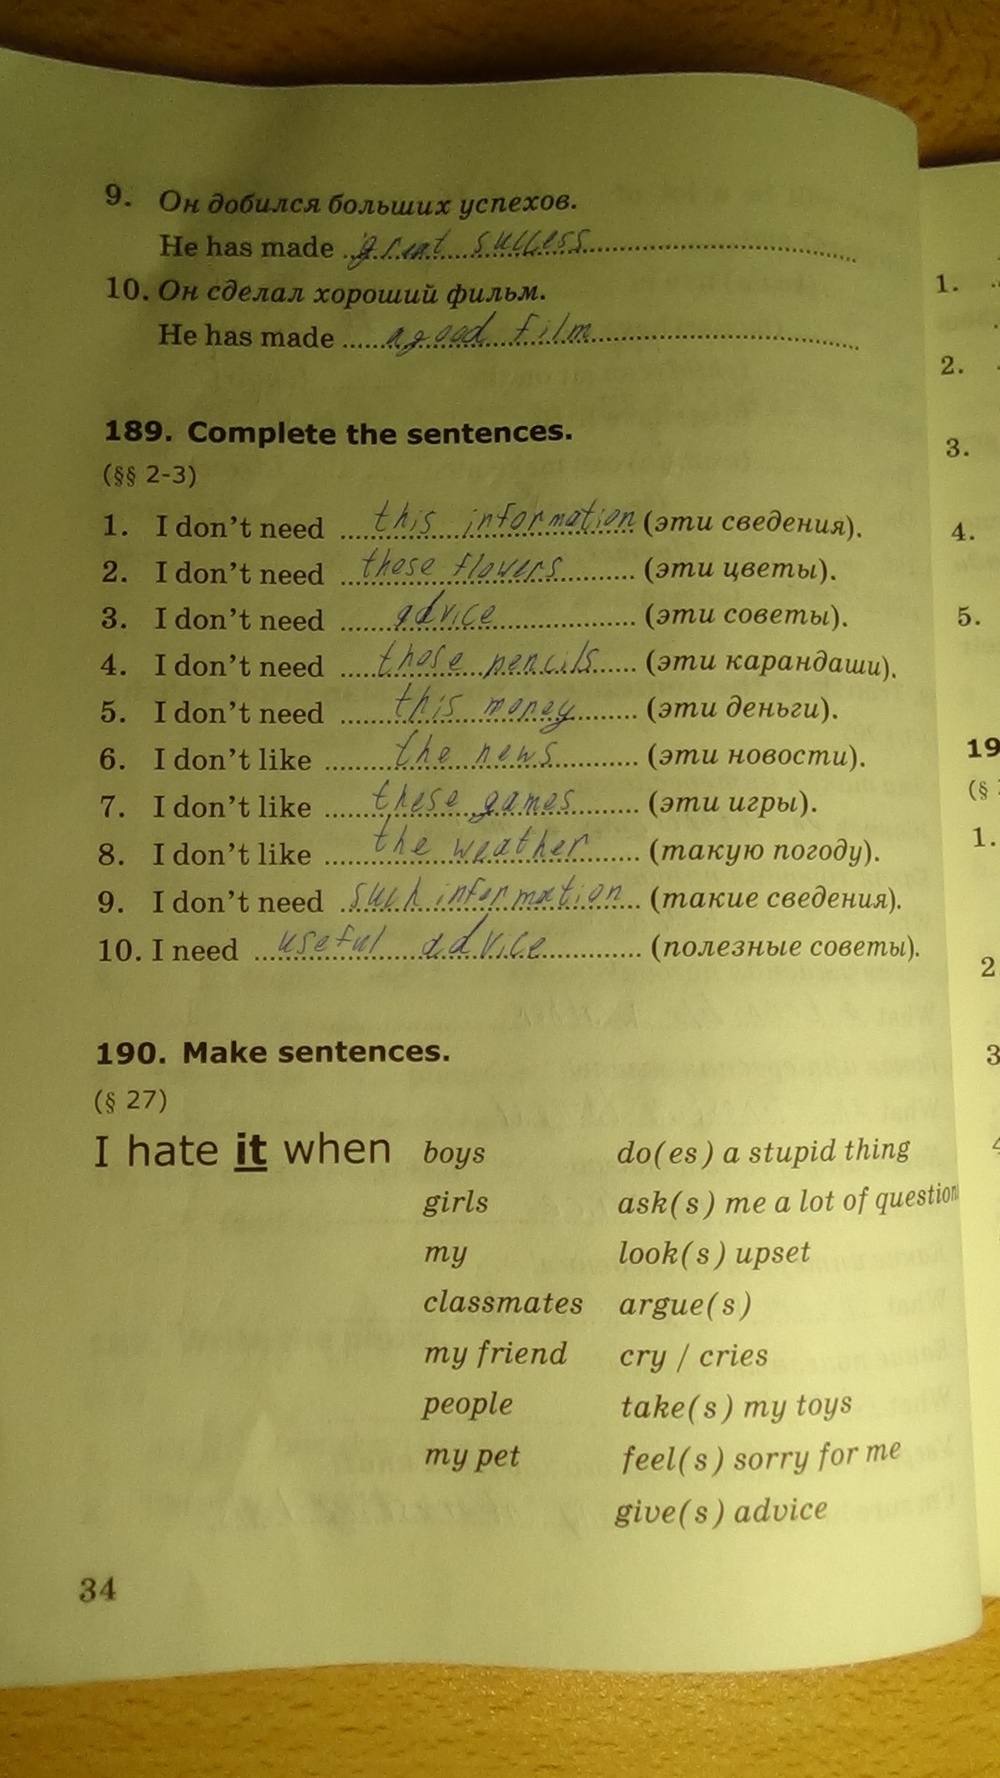 9. Он добился больших успехов.
He has made great success
10. Он сделал хороший фильм.
He has made a good film
189. Complete the sentences.
(§§ 2-3)
1. I don't need this information (эти сведения).
2. I don't need those flowers (эти цветы).
3. I don't need advice (эти советы).
4. I don't need those pencils (эти карандаши).
5. I don't need this money (эти деньги).
6. I don't like the news (эти новости).
7. I don't like these games (эти игры).
8. I don't like the weather (такую погоду).
9. I don't need such information (такие сведения).
10. I need useful advice (полезные советы).
190. Make sentences.
(§ 27)
I hate it when boys do(es) a stupid thing
girls ask(s) me a lot of question
my look(s) upset
classmates argue(s)
my friend cry / cries
people take(s) my toys
my pet feel(s) sorry for me
give(s) advice
34
1.
2.
3.
4.
5.
19
(§
1.
2
3